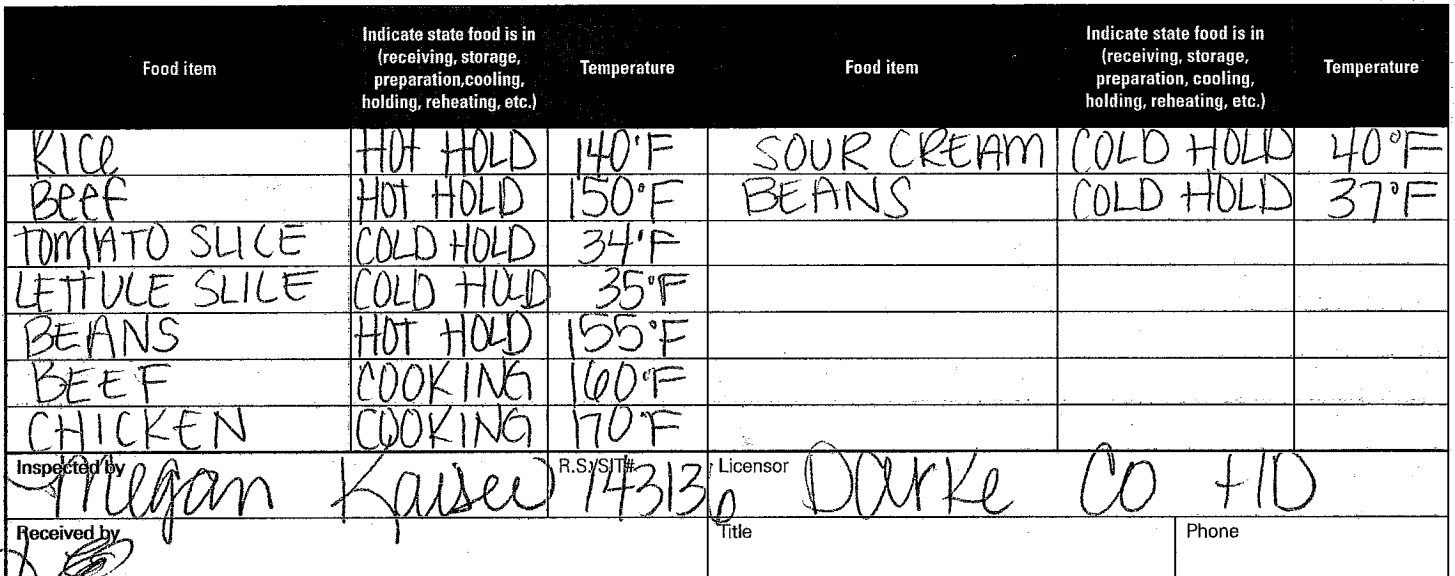 Food item Indicate state food is in (receiving, storage, preparation,cooling, holding, reheating, etc.) Temperature Food item Indicate state food is in (receiving, storage, preparation, cooling, holding, reheating, etc.) Temperature
Rice HOT HOLD 140°F SOUR CREAM COLD HOLD 40°F
Beef HOT HOLD 150°F BEANS COLD HOLD 37°F
TOMATO SLICE COLD HOLD 34°F
LETTUCE SLICE COLD HOLD 35°F
BEANS HOT HOLD 155°F
BEEF COOKING 160°F
CHICKEN COOKING 170°F
Inspected by Megan Kaiser R.S./SIT# Licensor Darke Co HD
Received by Title Phone